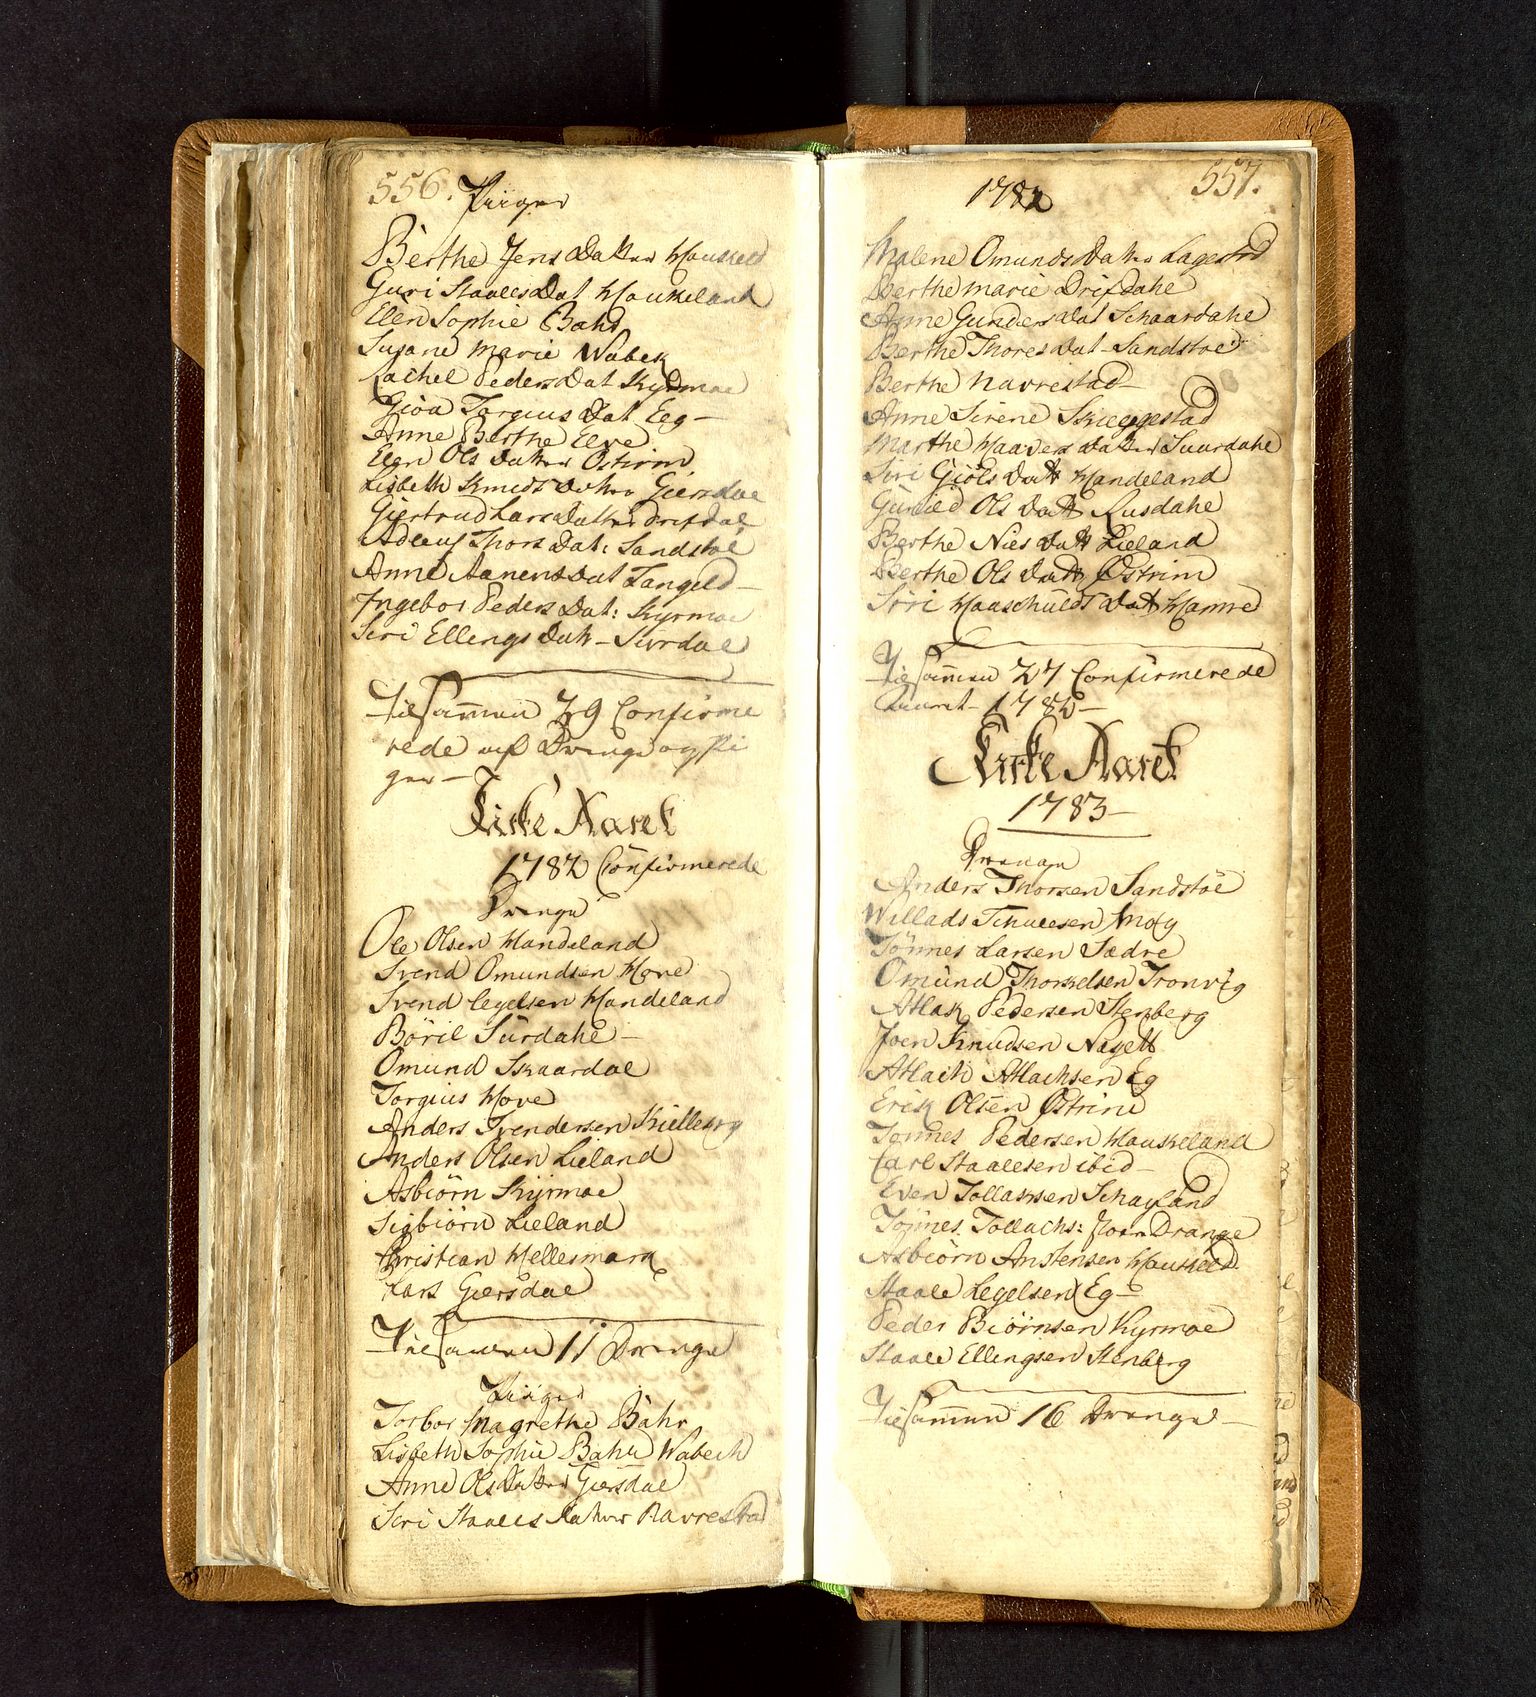 556. Piiger
Berthe Jens Datter Houskeld
Guri Staales Dat Houkeland
Elen Sophie Bahr
Susane Marie Wabek
Rachel Peders Dat Kydmoe
Gioa Torgius Dat Eeg -
Anne Berthe Elve
Elen Ols Datter Østrim
Lisbeth Smidts Datter Giersdal
Giertrud Lars Datter Drifdal
Thors Dat: Sandstøl
Anne Aanens Dat Tangeld -
Ingebor Peders Dat: Kyrmoe
Siri Ellings Datt - Surdal
Tilsammen 29 Confirme
rede af Drenge og Pi
ger -
Kirke Aaret
1782 Confirmerede
Drenge
Ole Olsen Handeland
Svend Omundsen Hove
Svend Eegelsen Handeland
Böril Surdahl -
Omund Skaardal
Torgius Hove
Anders Svendersen Kielleberg
Anders Olsen Lieland
Asbiörn Kyrmoe
Sigbiörn Lieland
Christian Hellesmark
Lars Giersdal
Tilsammen 11 Drenge
Piiger
Torbor Magrethe Bahr
Lisbeth Sophie Bahr Wabech
Anne Olsdatter Giersdal
Siri Staales Datter Navrestad
1782
557.
Malene Omunds Datter Lagestad
Berthe Marie Drifdahl
Anne Gunders Dat Schaardahl
Berthe Thores Dat - Sandstøl
Berthe Navrestad -
Anne Sirene Skreggestad
Marthe Haavers Datter Suurdahl
Siri Giöls Datt Handeland
Guniled Ols Datt Rusdahl
Berthe Niels Datt Lieland
Berthe Ols Datt Østrim
Siri Haaschulds Datt Hamre
Tilsammen 27 Confirmerede
Aaret 1782 -
Kirke Aaret
1783 -
Drenge
Anders Thorsen Sandstøl
Willads Tchuelsen Moy
Tönnes Larsen Sædre
Omund Thorkelsen Tronvig
Atlak Pedersen Stenberg
Joen Knudsen Nagelt
Atlach Atlachsen Eg
Erik Olsen Østrim
Tønnes Pedersen Haukeland
Carl Staalesen ibid -
Even Tollaksen Schayland
Tönnes Tollachs: Joen Drange
Asbiörn Anstensen Houskeld
Staale Legelsen Eg -
Peder Biörnsen Kyrmoe
Staale Ellingsen Stenberg
Tilsammen 16 Drenge -